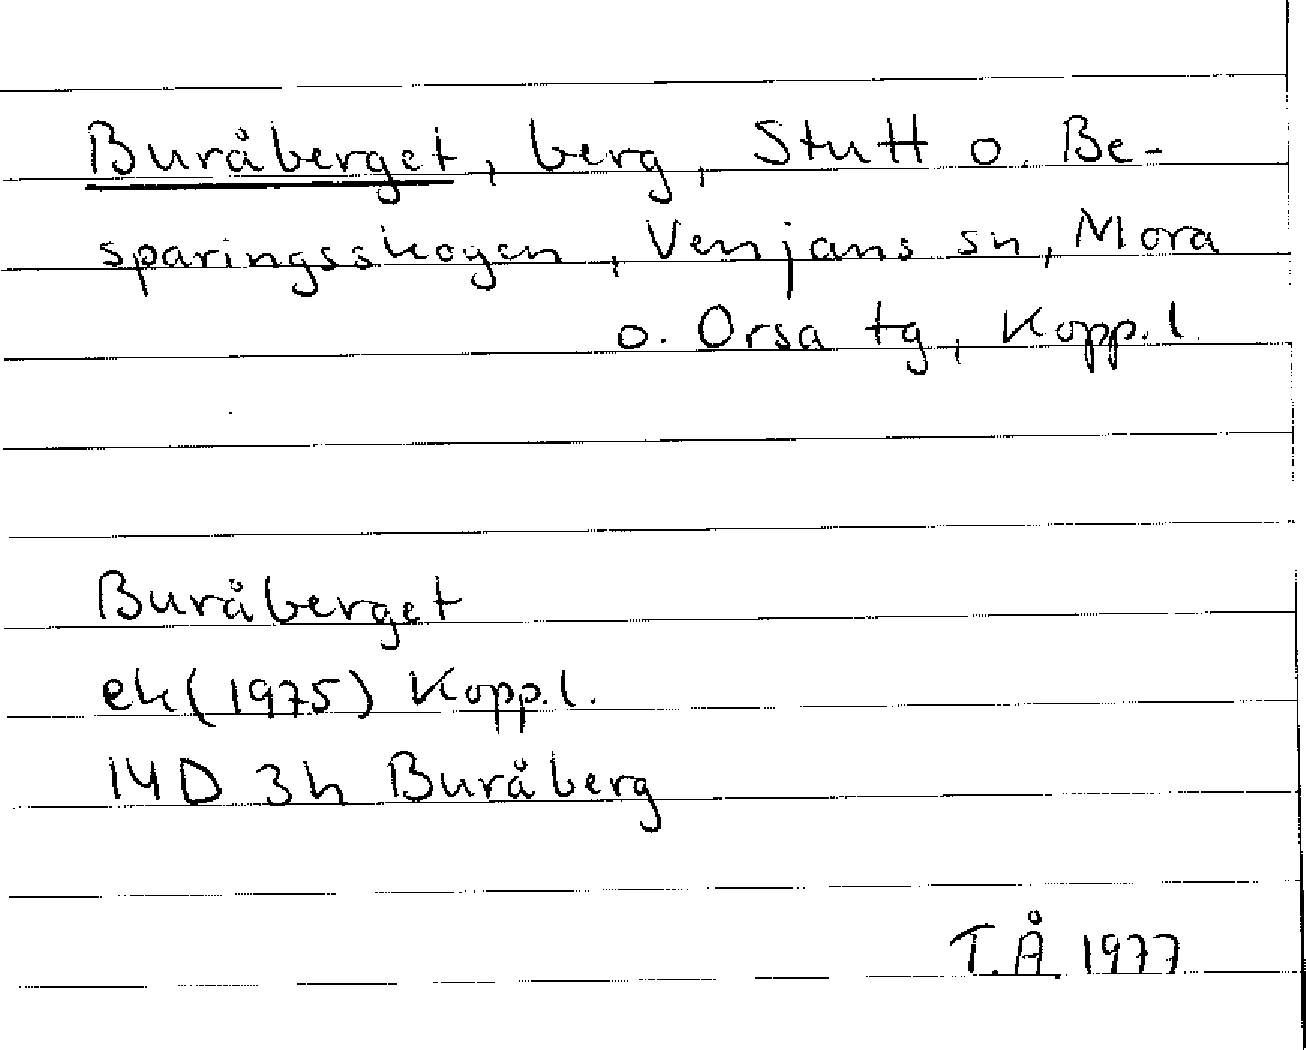 Buråberget, berg, Stutt o. Be-
sparingsskogen, Venjans sn, Mora
o. Orsa tg, Kopp. l.
Buråberget
ek (1975) Kopp. l.
14D 3h Buråberg
T.Å 1977